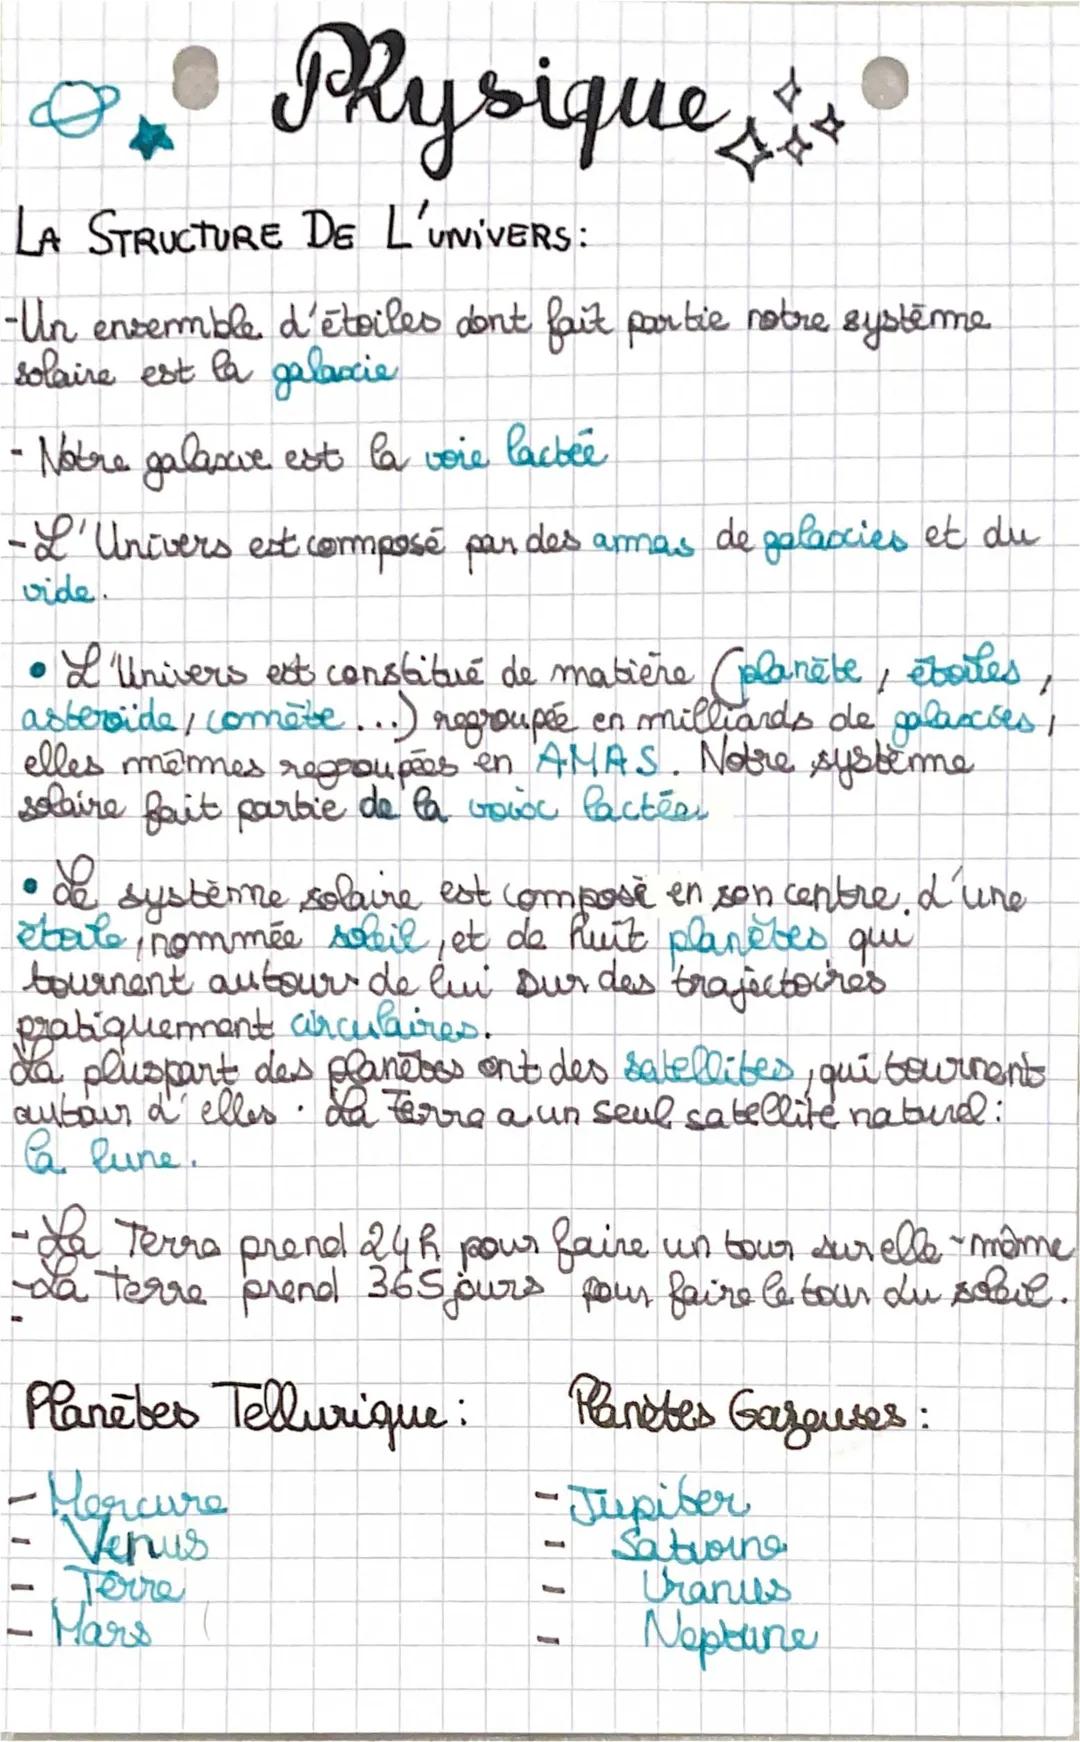 Physique
LA STRUCTURE DE L'UNIVERS:
-Un ensemble d'étoiles dont fait partie notre système
solaire est la galaxie
- Notre galaxie est la voie lactée
-L'Univers est composé par des amas de galaxies et du
vide.
• L'Univers est constitué de matière (planète, étoiles,
asteroïde, comète...) regroupée en milliards de galaxies,
elles mêmes regroupées en AMAS. Notre système
solaire fait partie de la voix lactée.
• Le système solaire est composé en son centre d'une
étoile, nommée soleil, et de huit planètes qui
tournent autours de lui sur des trajectoires
pratiquement circulaires.
La pluspart des planètes ont des satellites, qui tournents
autour d'elles. La Terre a un seul satellite naturel:
la lune.
-La Terre prend 24h pour faire un tour sur elle-même
-La Terre prend 365 jours pour faire le tour du soleil.
-
Planètes Tellurique: Planètes Gazeuses:
- Mercure - Jupiter
- Venus - Saturne
- Terre - Uranus
- Mars - Neptune